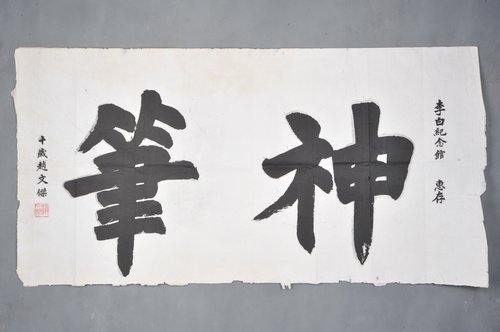 李白紀念館 惠存
神筆
十歲趙文傑